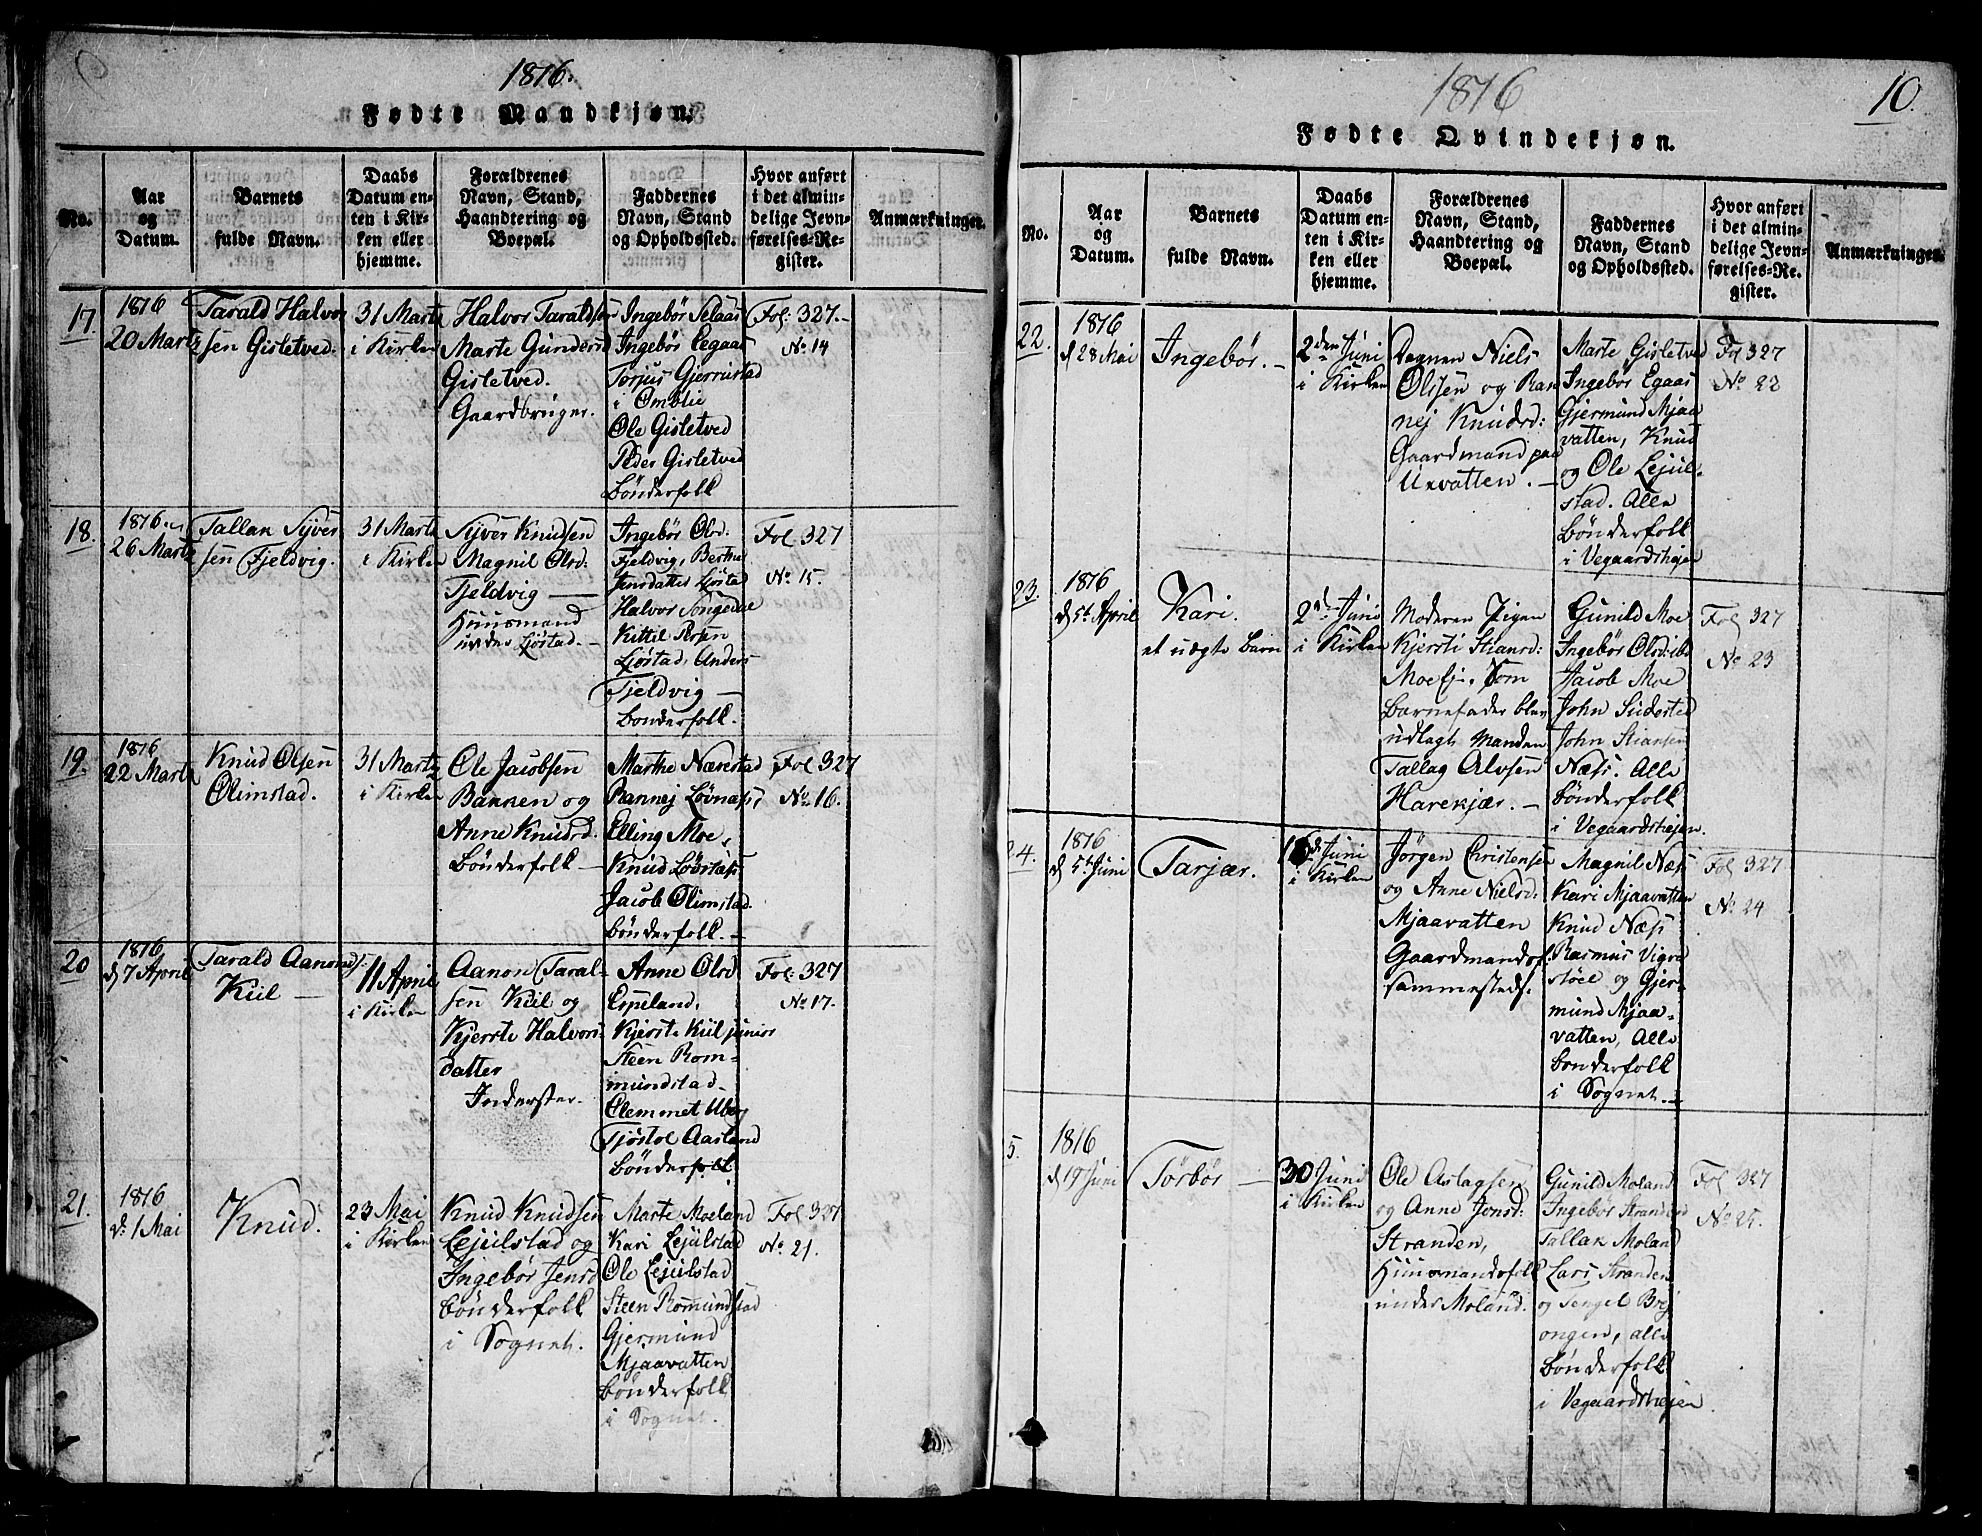 1816.
Fødte Mandkjøn.
No.
Aar
og
Datum.
Barnets
fulde Navn.
Daabs
Datum en-
ten i Kir-
ken eller
hjemme.
Forældrenes
Navn, Stand,
Haandtering og
Boepæl.
Faddernes
Navn, Stand
og Opholdssted.
Hvor anført
i det almin-
delige Jevn-
førelses-Re-
gister.
Anmærkninger.
17
1816
20 Martz
Tarald Halvor
sen Gisletved.
31 Martz
i Kirken
Halvor Taraldsen
Marte Gundersd
Gisletved.
Gaardbruger.
Ingebør Selaas
Ingebør Eegaas
Torjus Gjerrustad
i Omblie
Ole Gisletved
Peder Gisletved
Bønderfolk
Fol: 327.-
No 14
18.
1816
26 Martz
Tallak Syver
sen Fjeldvig.
31 Martz
i Kirken
Syver Knudsen
Magnil Olsd:
Fjeldvig —
Huusmand
under Ljøstad. -
Ingebør Olsd.
Fjeldvig, Berthe
Jensdatter Ljøstad
Halvor Songedal
Kittil Persen
Ljøstad, Anders
Fjeldvig —
bonderfolk.
Fol 327
No 15.
19.
1816
22 Martz
Knud Olsen
Olimstad.
31 Martz
i Kirken
Ole Jacobsen
Bakken og
Anne Knudsd.
Bønderfolk —
Marthe Nærestad
Rannej Løvnæs
Elling Moe,
Knud Løvnæs
Jacob Olimstad.
bønderfolk. -
Fol 327
No 16.
20
1816
d 7 April
Tarald Aanonds:
Kiil —
11 April
i Kirken
Aanon Taral-
sen Kiil og
Kjerste Halvors-
datter
Inderster.
Anne Olsd
Espeland,
Kjerste Kiil junior
Steen Rom-
mundstad
Clemmet Uberg
Tjøstol Aasland
Bønderfolk
Fol: 327
No 17.
21.
1816
d: 1 Mai
Knud.
23 Mai
i Kirken
Knud Knudsen
Lejulstad og
Ingebør Jensd
bønderfolk
i Sognet.
Marte Moeland
Kari Lejulstad
Ole Lejulstad
Steen Rommundstad
Gjermund
Mjaavatten
bønderfolk
i Sognet.
Fol 327
No. 21.
1816
10.
Fødte Qvindekjøn.
No.
Aar
og
Datum.
Barnets
fulde Navn.
Daabs
Datum en-
ten i Kir-
ken eller
hjemme.
Forældrenes
Navn, Stand,
Haandtering og
Boepæl.
Faddernes
Navn, Stand
og Opholdssted.
Hvor anført
i det almin-
delige Jevn-
førelses-Re-
gister.
Anmærkninger.
22.
1816
d 28 Mai
Ingebør. -
2den Juni
i Kirken
Dagnen Niels
Olssen og Ran
nej Knudsd:
Gaardmand paa
Uxvatten. -
Marte Gisletved
Ingebør Egaas
Gjermund Mjaa
vatten, Knud
og Ole Lejul-
stad. Alle
bønderfolk
i Vegaardsheien
Fol 327
No 22
23.
1816
d 5t April
Kari.
et uægte barn
2den Juni
i Kirken
Moderen Pigen
Kjersti Stiansd:
Moe ej. Som
barnefader blev
udlagt Manden
Tallag Alvsen
Harekjær. -
Gunild Moe
Ingebør Olsd: ibd
Jacob Moe
John Sudested
John Stiansen
Næss. Alle
bønderfolk
i Vegaardsheien.
Fol 327
No 23
24.
1816
d 5t Juni
Tarjær.
16d Juni
i Kirken
Jørgen Christensen
og Anne Nielsd:
Mjaavatten
Gaardmandsf.
sammesteds.
Magnil Næss
Kari Mjaavatten
Knud Næss
Rasmus Vigre
støel og Gjer-
mund Mjaa-
vatten, Alle
bonderfolk
i Sognet. -
Fol 327
No. 24
5.
1816
d 19 Juni
Torbør —
30 Juni
i Kirken
Ole Aslagsen
og Anne Jonsd:
Stranden,
Huusmandsfolk
under Moland.
Gunild Moland
Ingebør Stranden
Tallak Moland
Lars Stranden
og Tengel Brej
ongen, alle
bønderfolk
i Vegaardsheien.
Fol 327
No 25.